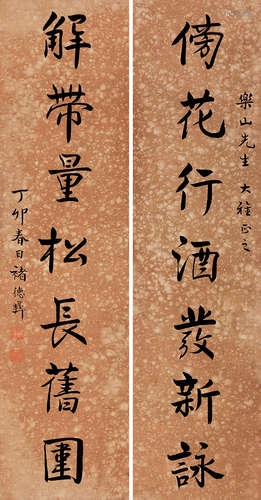 傍花行酒發新詠
樂山先生大雅正之
解帶量松長舊圍
丁卯春日褚德彝